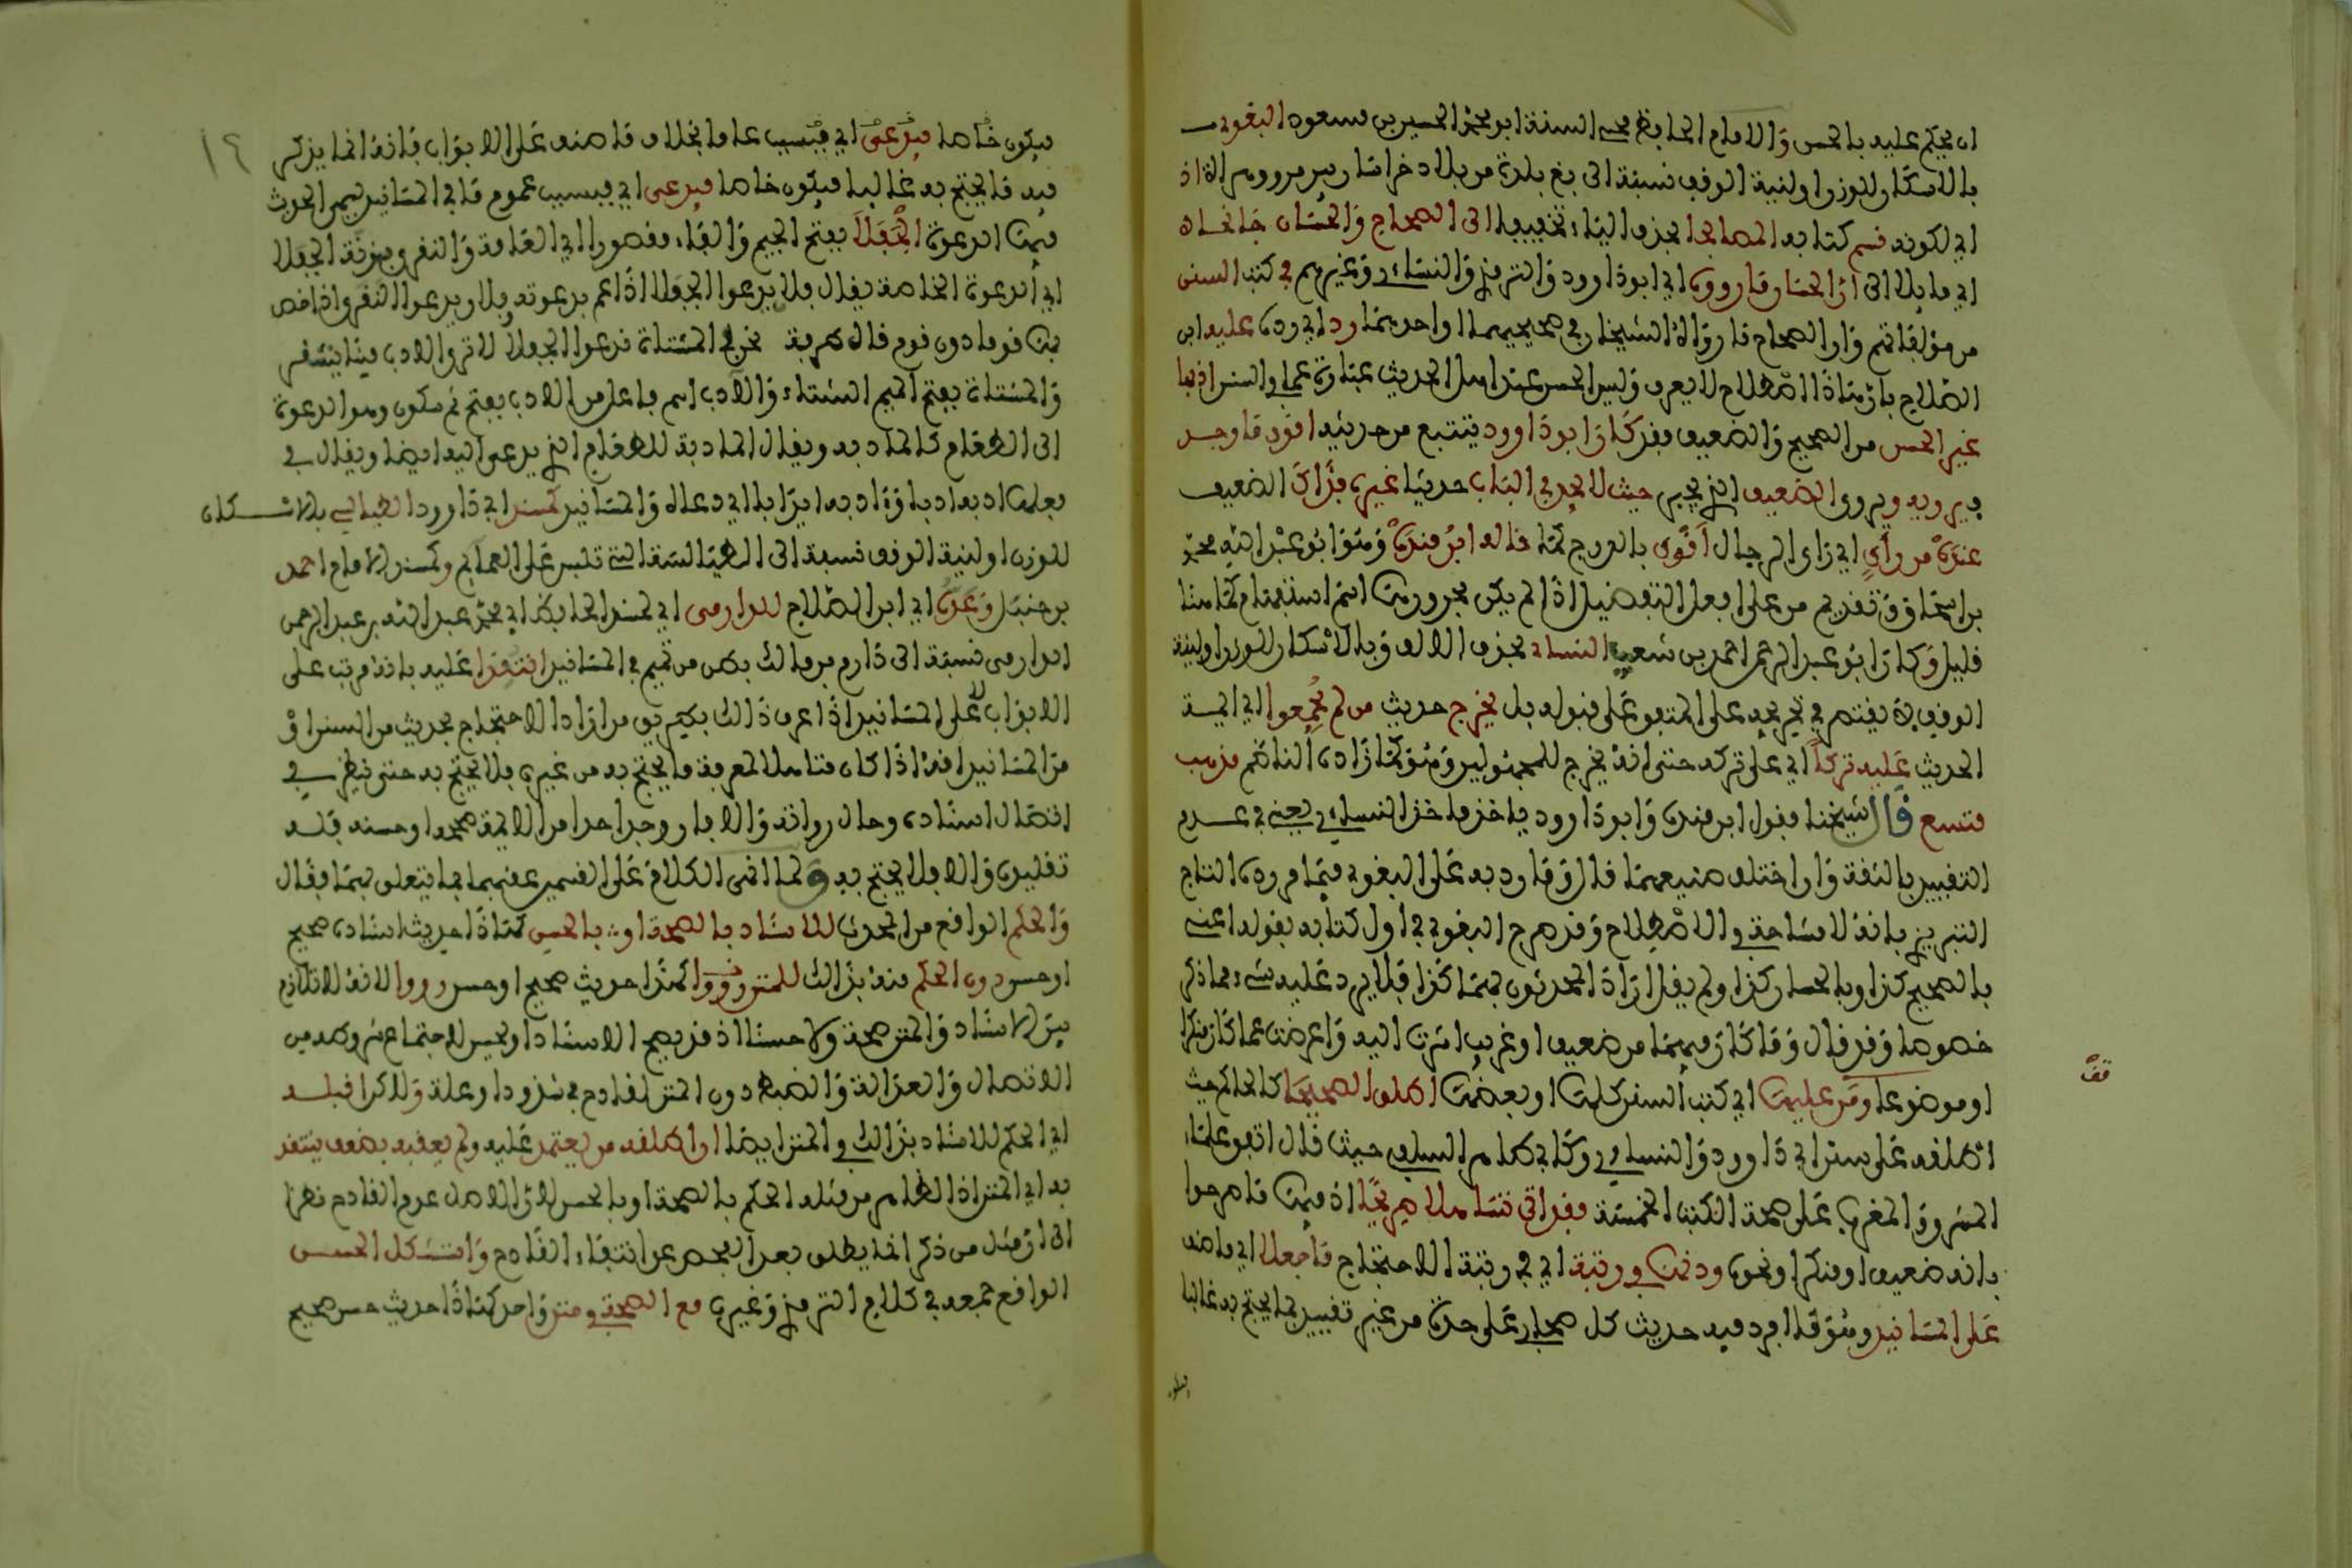 ان يحكم عليه بالحسن والامام الحافظ محيي السنة ابو محمد الحسين بن مسعود البغوي
بالاسكان للوزن او لنية الوقف نسبة الى بغ بلدة من بلاد خراسان بين مرو وهراة اذ
اي لكونه قسم كتابه المصابحا بحذف الياء تخفيفا الى الصحاح والحسان جانحا
اي مايلا الى ان الحسان ما رووه اي ابو داوود والترمذي والنساءي وغيرهم في كتب السنن
من مؤلفاتهم وان الصحاح ما رواه الشيخان في صحيحيهما او احدهما رد اي رده عليه ابن
الصلاح بان هذا اصطلاح لا يعرف وليس الحسن عند اهل الحديث عبارة عما في السنن اذ بها
غير الحسن من الصحيح والضعيف فقد كان ابو داوود يتتبع من حديثه اقوى ما وجد
فيرويه ويروي الضعيف الذي يجبر حيث لا يجد في الباب حديثا غيره فذاك الضعيف
عنده من رأي اي رأي الرجال اقوى بالدرج كما قاله ابن منده وهو ابو عبد الله محمد
بن اسحاق وتقديم من على افعل التفضيل اذا لم يكن مجرورها اسم استفهام كما هنا
قليل وكان ابو عبد الرحمن احمد بن شعيب النسا بحذف الالف وبالاسكان للوزن او لنية
الوقف لا يقتصر في تخريجه على المتفق على قبوله بل يخرج حديث من لم يجمعوا اي ايمة
الحديث عليه تركا اي على تركه حتى انه يخرج للمجهولين وهو كما زاده الناظم مذهب
متسع قال شيخنا فقول ابن منده وابو داوود ياخذ ماخذ النساءي يعني في عدم
التقييد بالثقة وان اختلف صنيعهما قال وما رد به على البغوي فيما مر رده التاج
التبريزي بانه لا مشاحة في الاصطلاح وقد صرح البغوي في اول كتابه بقوله اعني
بالصحيح كذا وبالحسان كذا ولم يقل اراد المحدثون بهما كذا فلا يرد عليه شيء مما ذكر
خصوصا وقد قال وما كان فيهما من ضعيف او غريب اشرت اليه واعرضت عما كان منكرا
او موضوعا ومن عليها اي كتب السنن كلها او بعضها اطلق الصحيحا كالحاكم حيث
اطلقه على سنن ابي داوود والنساءي وكابي طاهر السلفي حيث قال اتفق علماء
المشرق والمغرب على صحة الكتب الخمسة فقد اتى تساهلا صريحا اذ فيها ما صرحوا
بانه ضعيف او منكر او نحوه ودونها في رتبة اي في رتبة الاحتجاج ما جعلا اي ما صنف
على المسانيد وهو ما افرد فيه حديث كل صحابي على حدة من غير تقييد بما يحتج به غالبا
قف
١٦
فيكون خاصا فيدعى اي فينسب عاما بخلاف ما صنف على الابواب فانه انما يذكر
فيه ما يحتج به غالبا فيكون خاصا فيدعى اي فينسب عموم ما في المسانيد من الحديث
فيها الدعوة الجفلا بفتح الجيم والفاء مقصورا اي العامة والنقرى بوزنة الجفلا
اي الدعوة الخاصة يقال فلان يدعوا الجفلا اذا عم بدعوته وفلان يدعوا النقرى اذا خص
بها قوما دون قوم قال طرفة نحن في المشتاة ندعوا الجفلا لا ترى الادب فينا ينتقر
والمشتاة بفتح الميم الشتاء والادب اسم فاعل من الادب بفتح ثم سكون وهو الدعوة
الى الطعام كالمادبة ويقال المادبة للطعام الذي يدعى اليه ايضا ويقال في
فعلها ادب ادبا وءادب ايدابا اي دعا له والمسانيد كمسند ابي داوود الطيالسي بالاسكان
للوزن او لنية الوقف نسبة الى الطيالسة التي تلبس على العمايم وكمسند الامام احمد
بن حنبل وعده اي ابن الصلاح للدارمي اي لمسند الحافظ ابي محمد عبد الله بن عبد الرحمن
الدارمي نسبة الى دارم بن مالك بطن من تميم في المسانيد انتقدا عليه بانه مرتب على
الابواب لا على المسانيد اذا عرف ذلك فطريق من اراد الاحتجاج بحديث من السنن او
من المسانيد انه اذا كان متاهلا لمعرفة ما يحتج به من غيره فلا يحتج به حتى ينظر في
اتصال اسناده وحال رواته والا فان وجد احدا من الايمة صححه او حسنه فله
تقليده والا فلا يحتج به ولما انهى الكلام على القسمين عقبهما بما يتعلق بهما فقال
والحكم الواقع من المحدث للاسناد بالصحة او بالحسن كهذا حديث اسناده صحيح
او حسن دون الحكم منه بذلك للمتن رووا كهذا حديث صحيح او حسن رووا لانه لا تلازم
بين الاسناد والمتن صحة ولا حسنا اذ قد يصح الاسناد او يحسن لاجتماع شروطه من
الاتصال والعدالة والضبط دون المتن لقادح من شذوذ او علة ولكن اقبله
اي الحكم للاسناد بذلك في المتن ايضا ان اطلقه من يعتمد عليه ولم يعقبه بضعف ينتقد
به اي المتن اذ الظاهر من مثله الحكم بالصحة او بالحسن لان الاصل عدم القادح نظرا
الى ان مثل من ذكر انما يطلق بعد الفحص عن انتفاء القادح واستشكل الحسن
الواقع جمعه في كلام الترمذي وغيره مع الصحة في متن واحد كهذا حديث حسن صحيح